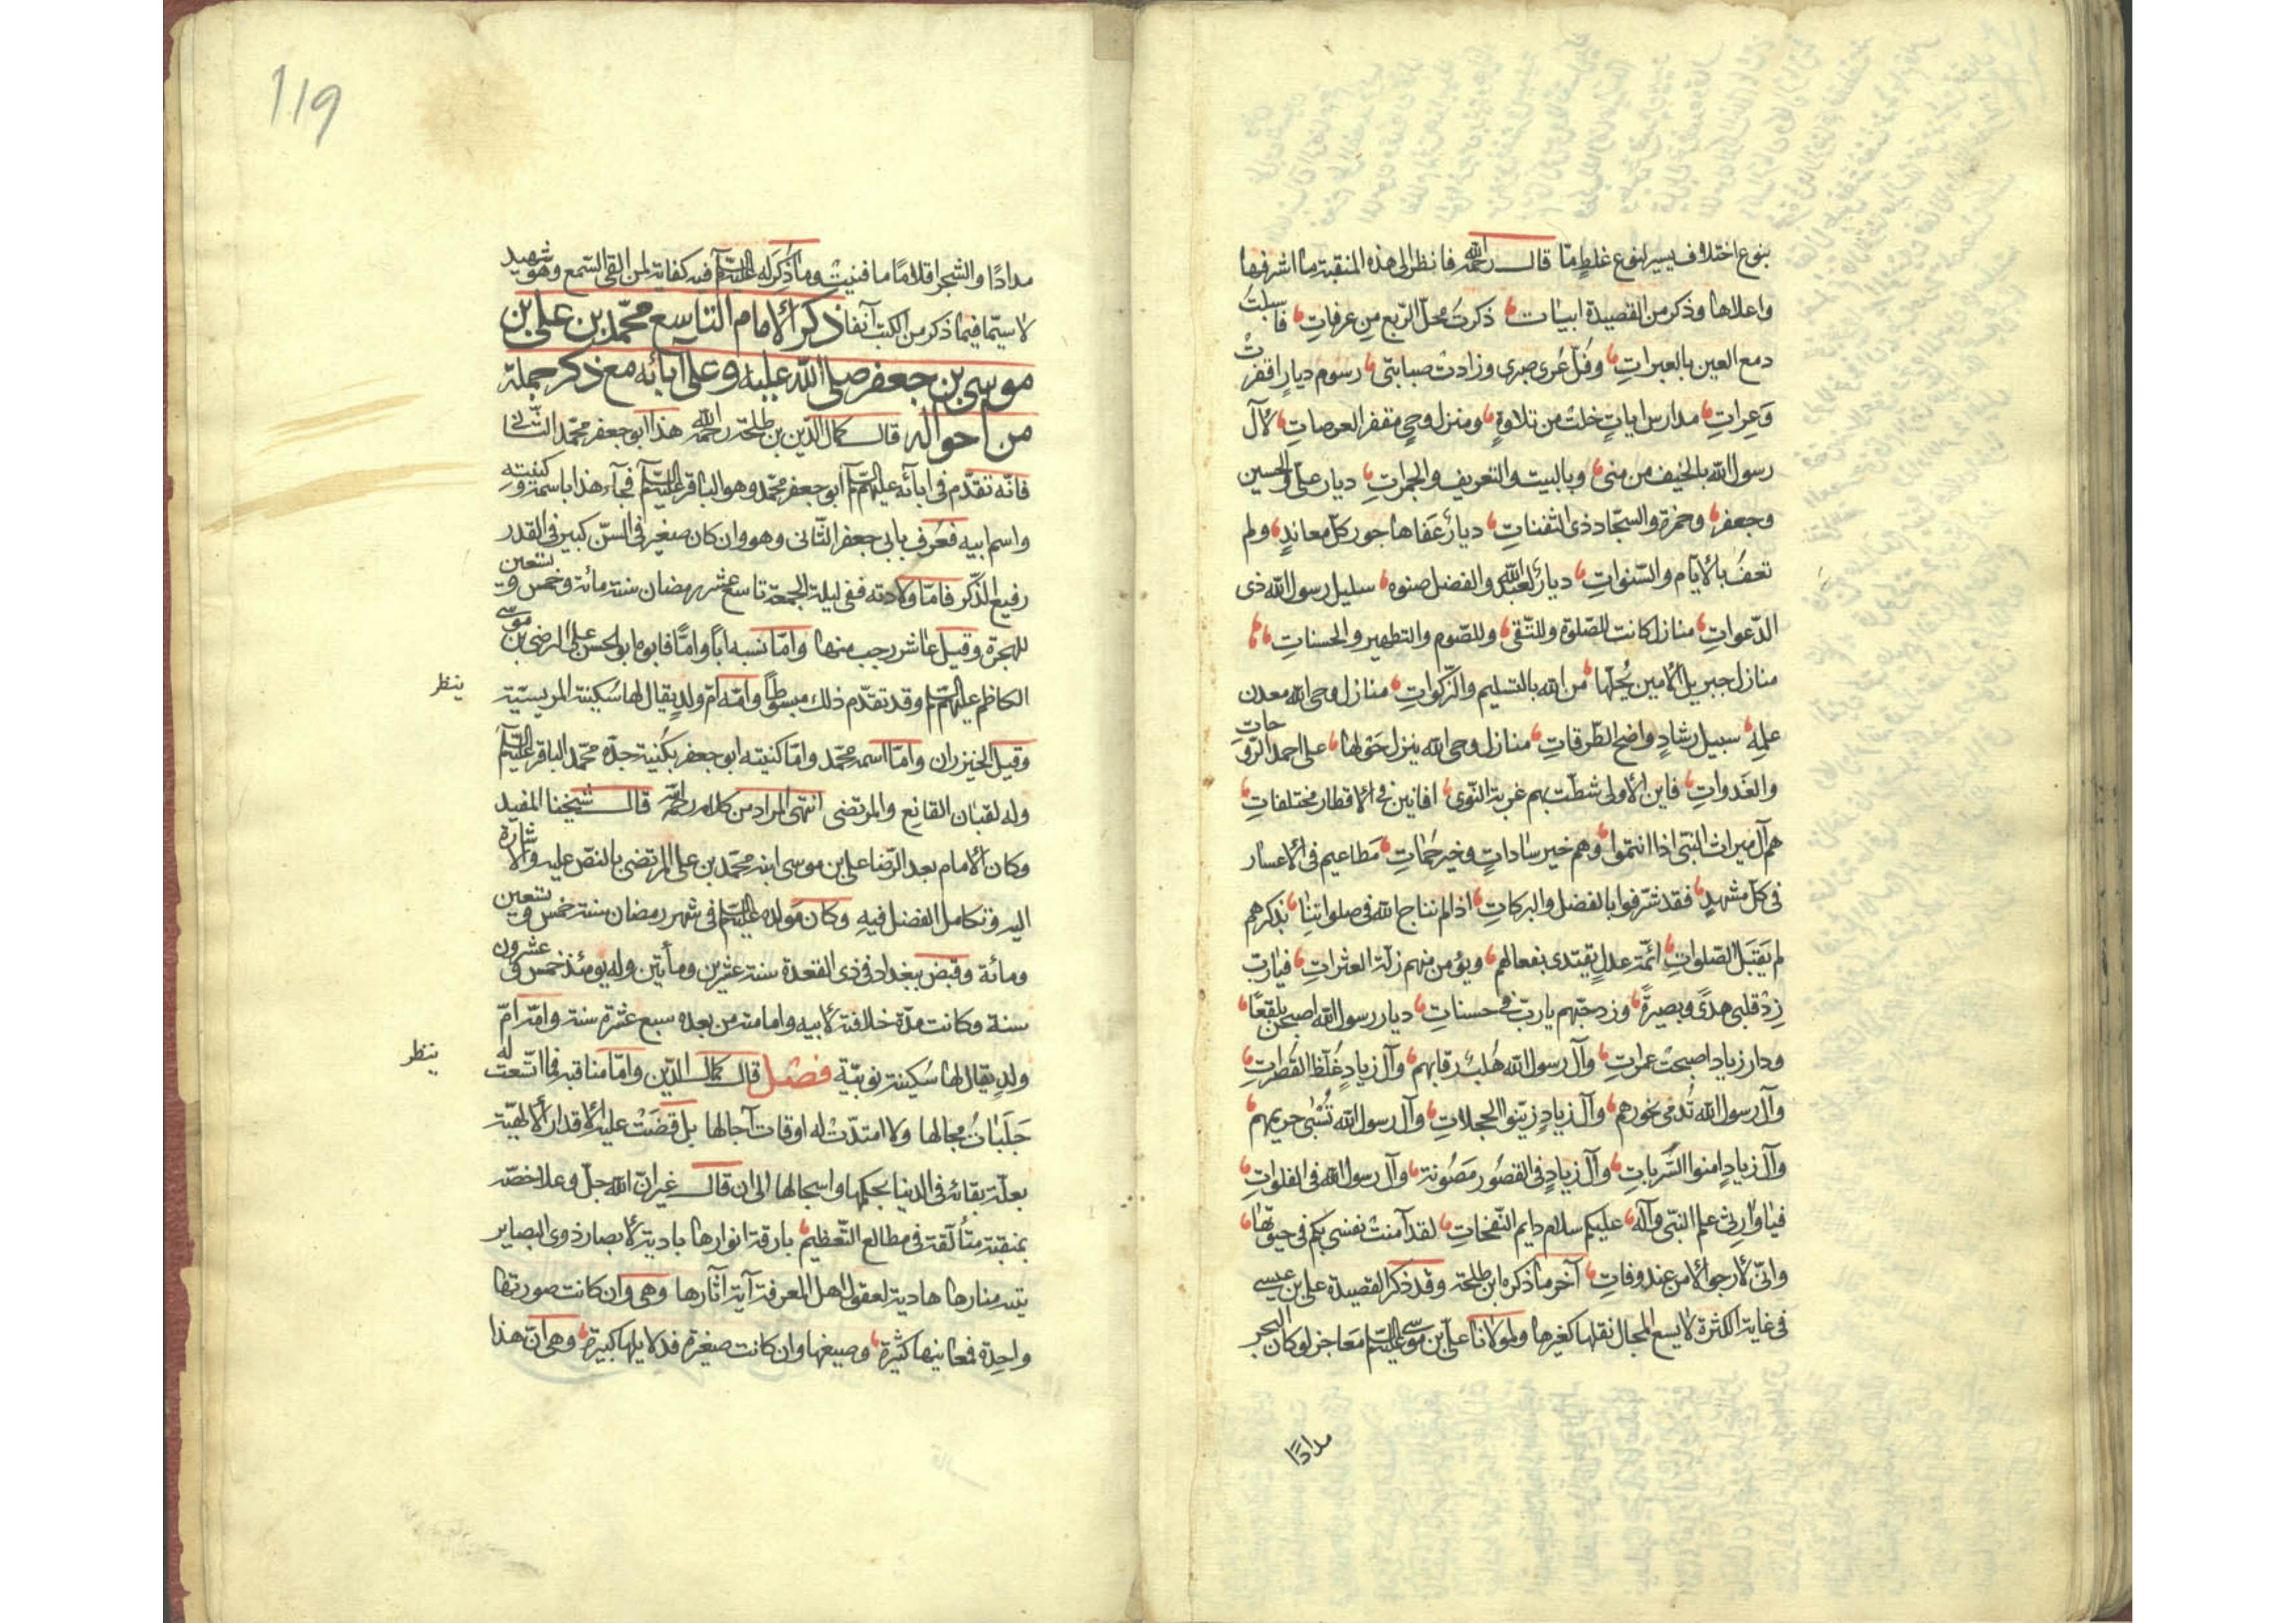 بنوع اختلاف يسير لنوع غلطٍ ما قال رحمه الله فانظر الى هذه المنقبة ما اشرفها
واعلاها وذكر من القصيدة ابيات ذكرتُ محلّ الرّبع مِن عرفاتِ فاسبلتُ
دمع العين بالعبراتِ وفُلّ عُرى صبرى وزادت صبابتى رسُومُ ديارٍ اقفرتْ
وَعِراتِ مدارس اياتٍ خلت من تلاوةٍ ومنزل وحىٍ مقفر العرصاتِ لآل
رسول الله بالخيف من منى وبالبيت والتعريف والجمراتِ ديار علىّ والحسين
وجعفر وحمزة والسجّاد ذى الثفناتِ ديارُ عَفاها جور كلّ معاندٍ ولم
تعفُ بالأيّام والسّنواتِ ديارُ لعبد الله والفضل صنوه سليل رسول الله ذى
الدّعواتِ منازل كانت للصّلوة وللتّقى وللصّوم والتطهير والحسنات
منازل جبريل الأمين يحُلّها من الله بالتسليم والزّكواتِ منازل وحى الله معدن
علمِهِ سبيل رشادٍ واضح الطّرقاتِ منازل وحى الله ينزل حَولها على احمد الرّوحات
والغَدواتِ فاين الأولى شطّت بهم غربة النّوى افانين فى الأقطار مختلفاتِ
هم آل ميراث النبّى اذا انتموا وهم خير ساداتٍ وخير حُماتِ مَطاعيم فى الأعسار
فى كلّ مشهدٍ فقد شرّفوا بالفضل والبركاتِ اذا لم نناج الله فى صلواتنا بذكرهم
لم يَقبَل الصّلواتِ ائمّة عدلٍ يقتدى بفعالهم ويؤمن منهم زلّة العثراتِ فيا ربّ
زِدْ قلبى هدىً وبصيرةً وزد حبّهم يا ربّ فى حسناتِ ديار رسول الله اصبحن بلقعًا
ودار زياد اصبحت عمراتِ وآل رسول الله هُلبٌ رقابهم وآل زيادٍ غُلّظ القَصَراتِ
وآل رسول الله تُدمى نحورهم وآل زيادٍ زيّنوا الحجلاتِ وآل رسول الله تُسْبى حريمهم
وآل زيادٍ امنوا السَّرَباتِ وآل زيادٍ فى القصُور مَصُونة وآل رسول الله فى الفلواتِ
فيا وارثى علم النبّى وآله عليكم سلام دايم النّفحاتِ لقد آمنتْ نفسى بكم فى حيوتها
وانّى لأرجو الأمن عند وفاتِ آخر ما ذكره ابن طلحة وقد ذكر القصيدة على بن عيسى
فى غاية الكثرة لا يسع المجال نقلها كغيرها ولمولانا علىّ بن موسى عليه السلم معاجز لو كان البحر
مدادًا
119
مدادًا والشجر اقلامًا ما فنيتْ وما ذُكِر له عليه السلم فيه كفاية لمن القى السّمع وهو شهيد
لا سيّما فيما ذكر من الكتب آنفا ذكر الأمام التاسع محمّد بن على بن
موسى بن جعفر صلى الله عليه وعلى آبائه مع ذكر جملة
من احواله قال كمال الدّين بن طلحة رحمه الله هذا ابو جعفر محمّد الثّانى
فانّه تقدّم فى ابائه عليهم السلم ابو جعفر محمّد وهو الباقر عليه السلم فجآء هذا باسمه وكنيته
واسم ابيه فعُرف بابى جعفر الثّانى وهو وان كان صغير فى السّن كبير فى القدر
رفيع الذّكر فامّا ولادته ففى ليلة الجمعة تاسع عشر رمضان سنة مائة وخمس وتسعين
للهجرة وقيل عاشر رجب منها وامّا نسبه اباً وامًّا فابوه ابو الحسن على الرضى بن موسى
الكاظم عليهم السلم وقد تقدّم ذلك مبسوطاً وامّه امّ ولدٍ يقال لها سُكينة المريسيّة
ينظر
وقيل الخيزران وامّا اسمه محمّد وامّا كنيته ابو جعفر بكُنية جدّه محمّد الباقر عليه السلم
وله لقبان القانع والمرتضى انتهى المراد من كلامه رحمه الله قال شيخنا المفيد
وكان الأمام بعد الرّضا على بن موسى ابنه محمّد بن على المرتضى بالنصّ عليه والاشارة
اليه وتكامل الفضل فيهِ وكان مَولده عليه السلم فى شهر رمضان سنة خمس وتسعين
ومائة وقبض ببغداد فى ذى القعدة سنة عشرين ومأتين وله يومئذ خمس وعشرون
سنة وكانت مدّة خلافته لأبيه وامامته من بعده سبع عشرة سنة وامّه امّ
ولدٍ يقال لها سُكينة نوبيّة فصل قال كمال الدّين وامّا مناقبه فما اتّسعت له
ينظر
حَلَباتُ مجالها ولا امتدّتْ له اوقات آجالها بل قضَتْ عليه الأقدار الألهيّة
بعلّة بقائه فى الدنيا بحكمها واسجالها الى ان قال غير انّ الله جلّ وعلا خصّه
بمنقبة متألّقة فى مطالع التّعظيم بارقة انوارها بادية لأبصار ذوى البصاير
بيّنة منارها هادية لعقول اهل المعرفة آية آثارها وهى وان كانت صورتها
واحِدة فمعانيها كثيرة وصيغها وان كانت صغيرة فدلايلها كبيرة وهى انّ هذا